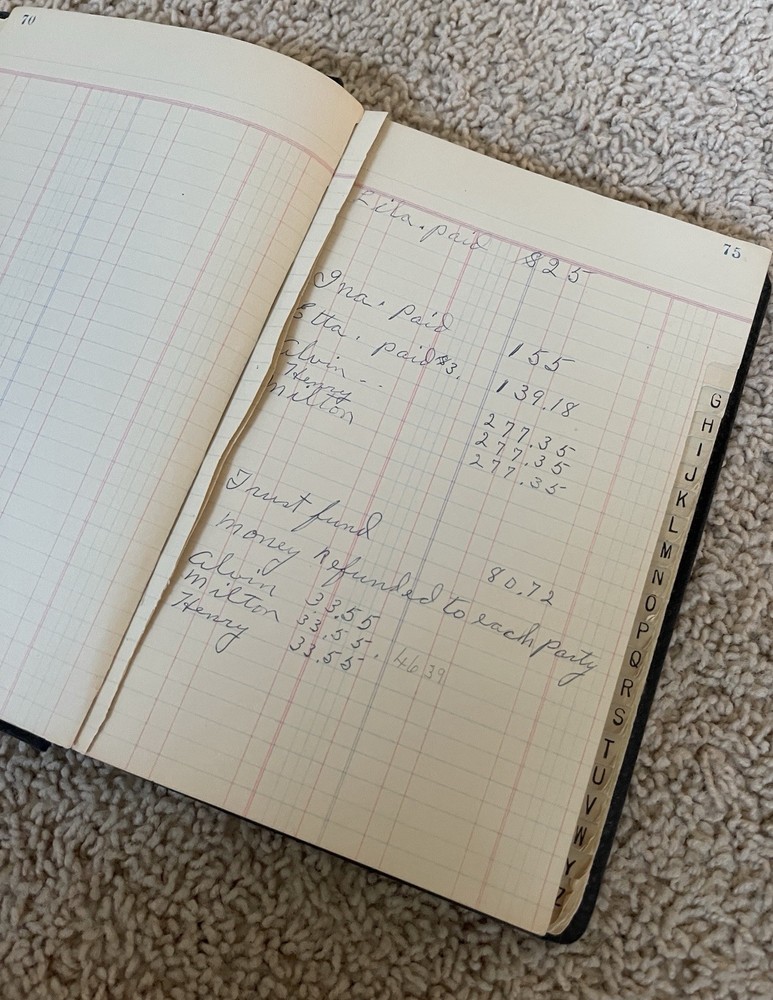 70
75
Zita. paid $25
Ina. Paid 155
Etta. paid $3. 139.18
Alvin -- 277.35
Henry 277.35
Milton 277.35
Trust fund 80.72
money Refunded to each party
Alvin 33.55
Milton 33.55. 4639
Henry 33.55
G
H
I
J
K
L
M
N
O
P
Q
R
S
T
U
V
W
Y
Z